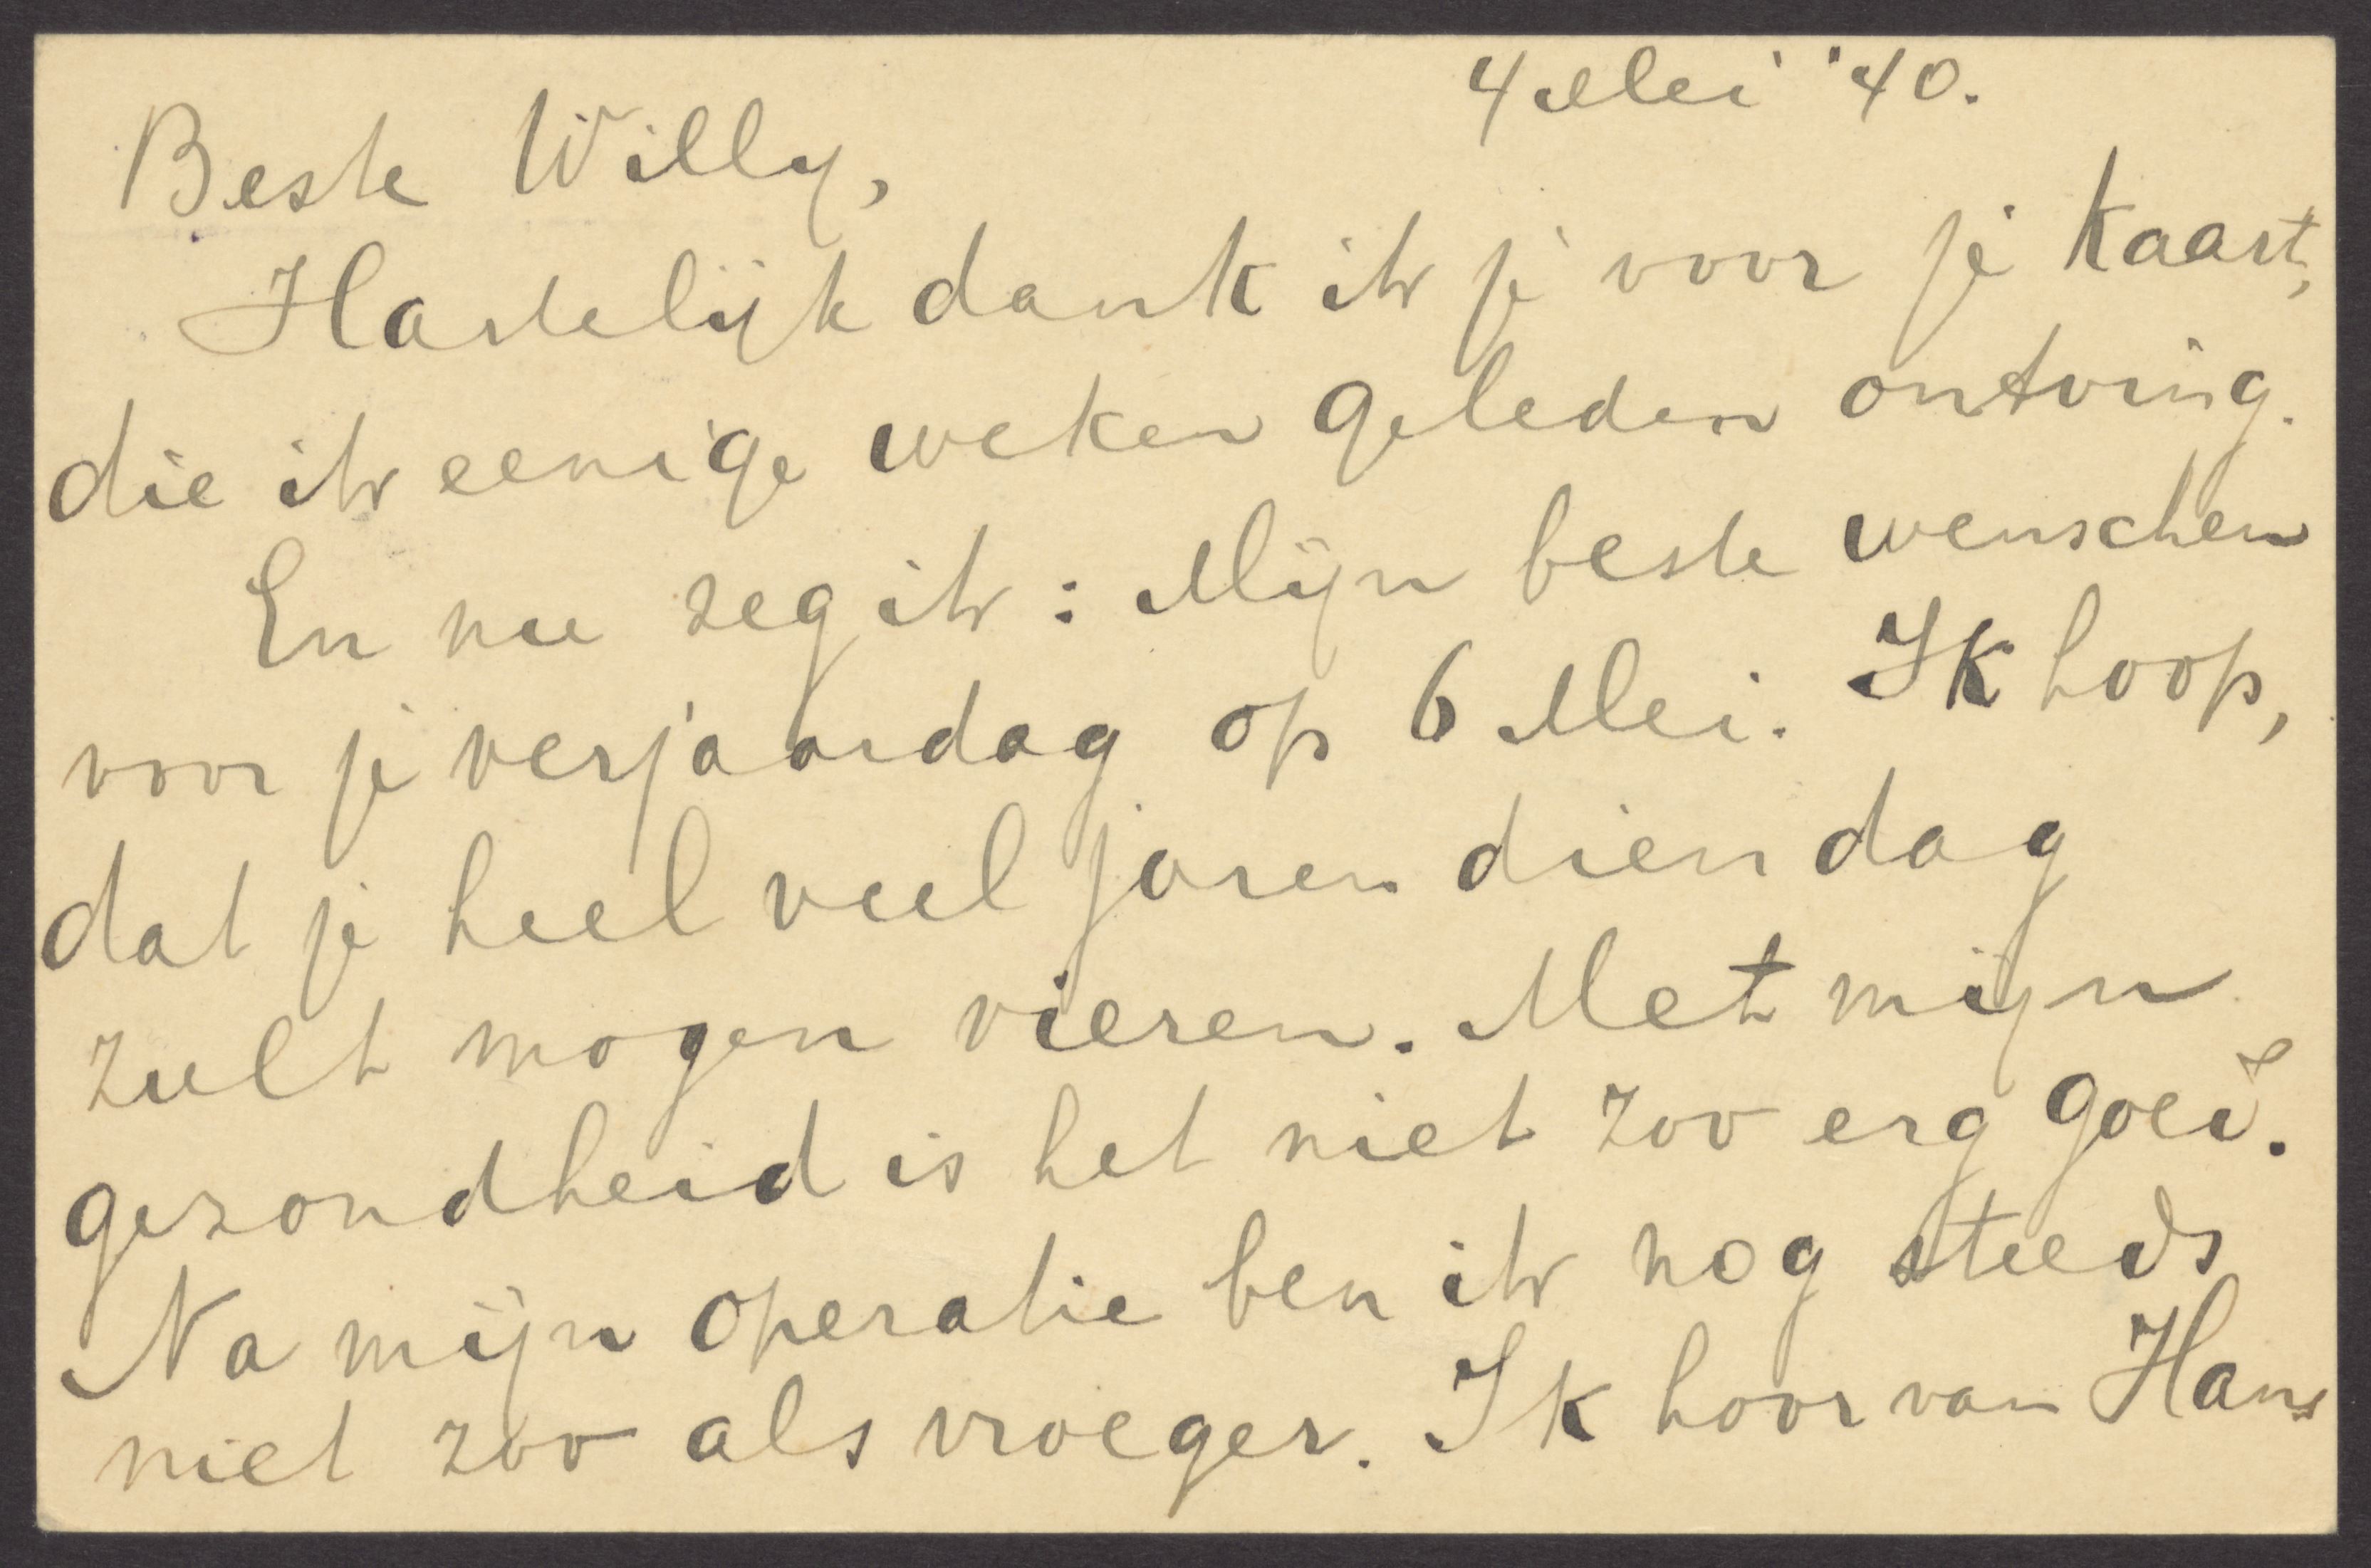 4 Mei '40.
Beste Willy,
Hartelijk dank ik je voor je kaart,
die ik eenige weken geleden ontving.
En nu zeg ik: Mijn beste wenschen
voor je verjaardag op 6 Mei. Ik hoop,
dat je heel veel jaren dien dag
zult mogen vieren. Met mijn
gezondheid is het niet zoo erg goed.
Na mijn operatie ben ik nog steeds
niet zoo als vroeger. Ik hoor van Hans